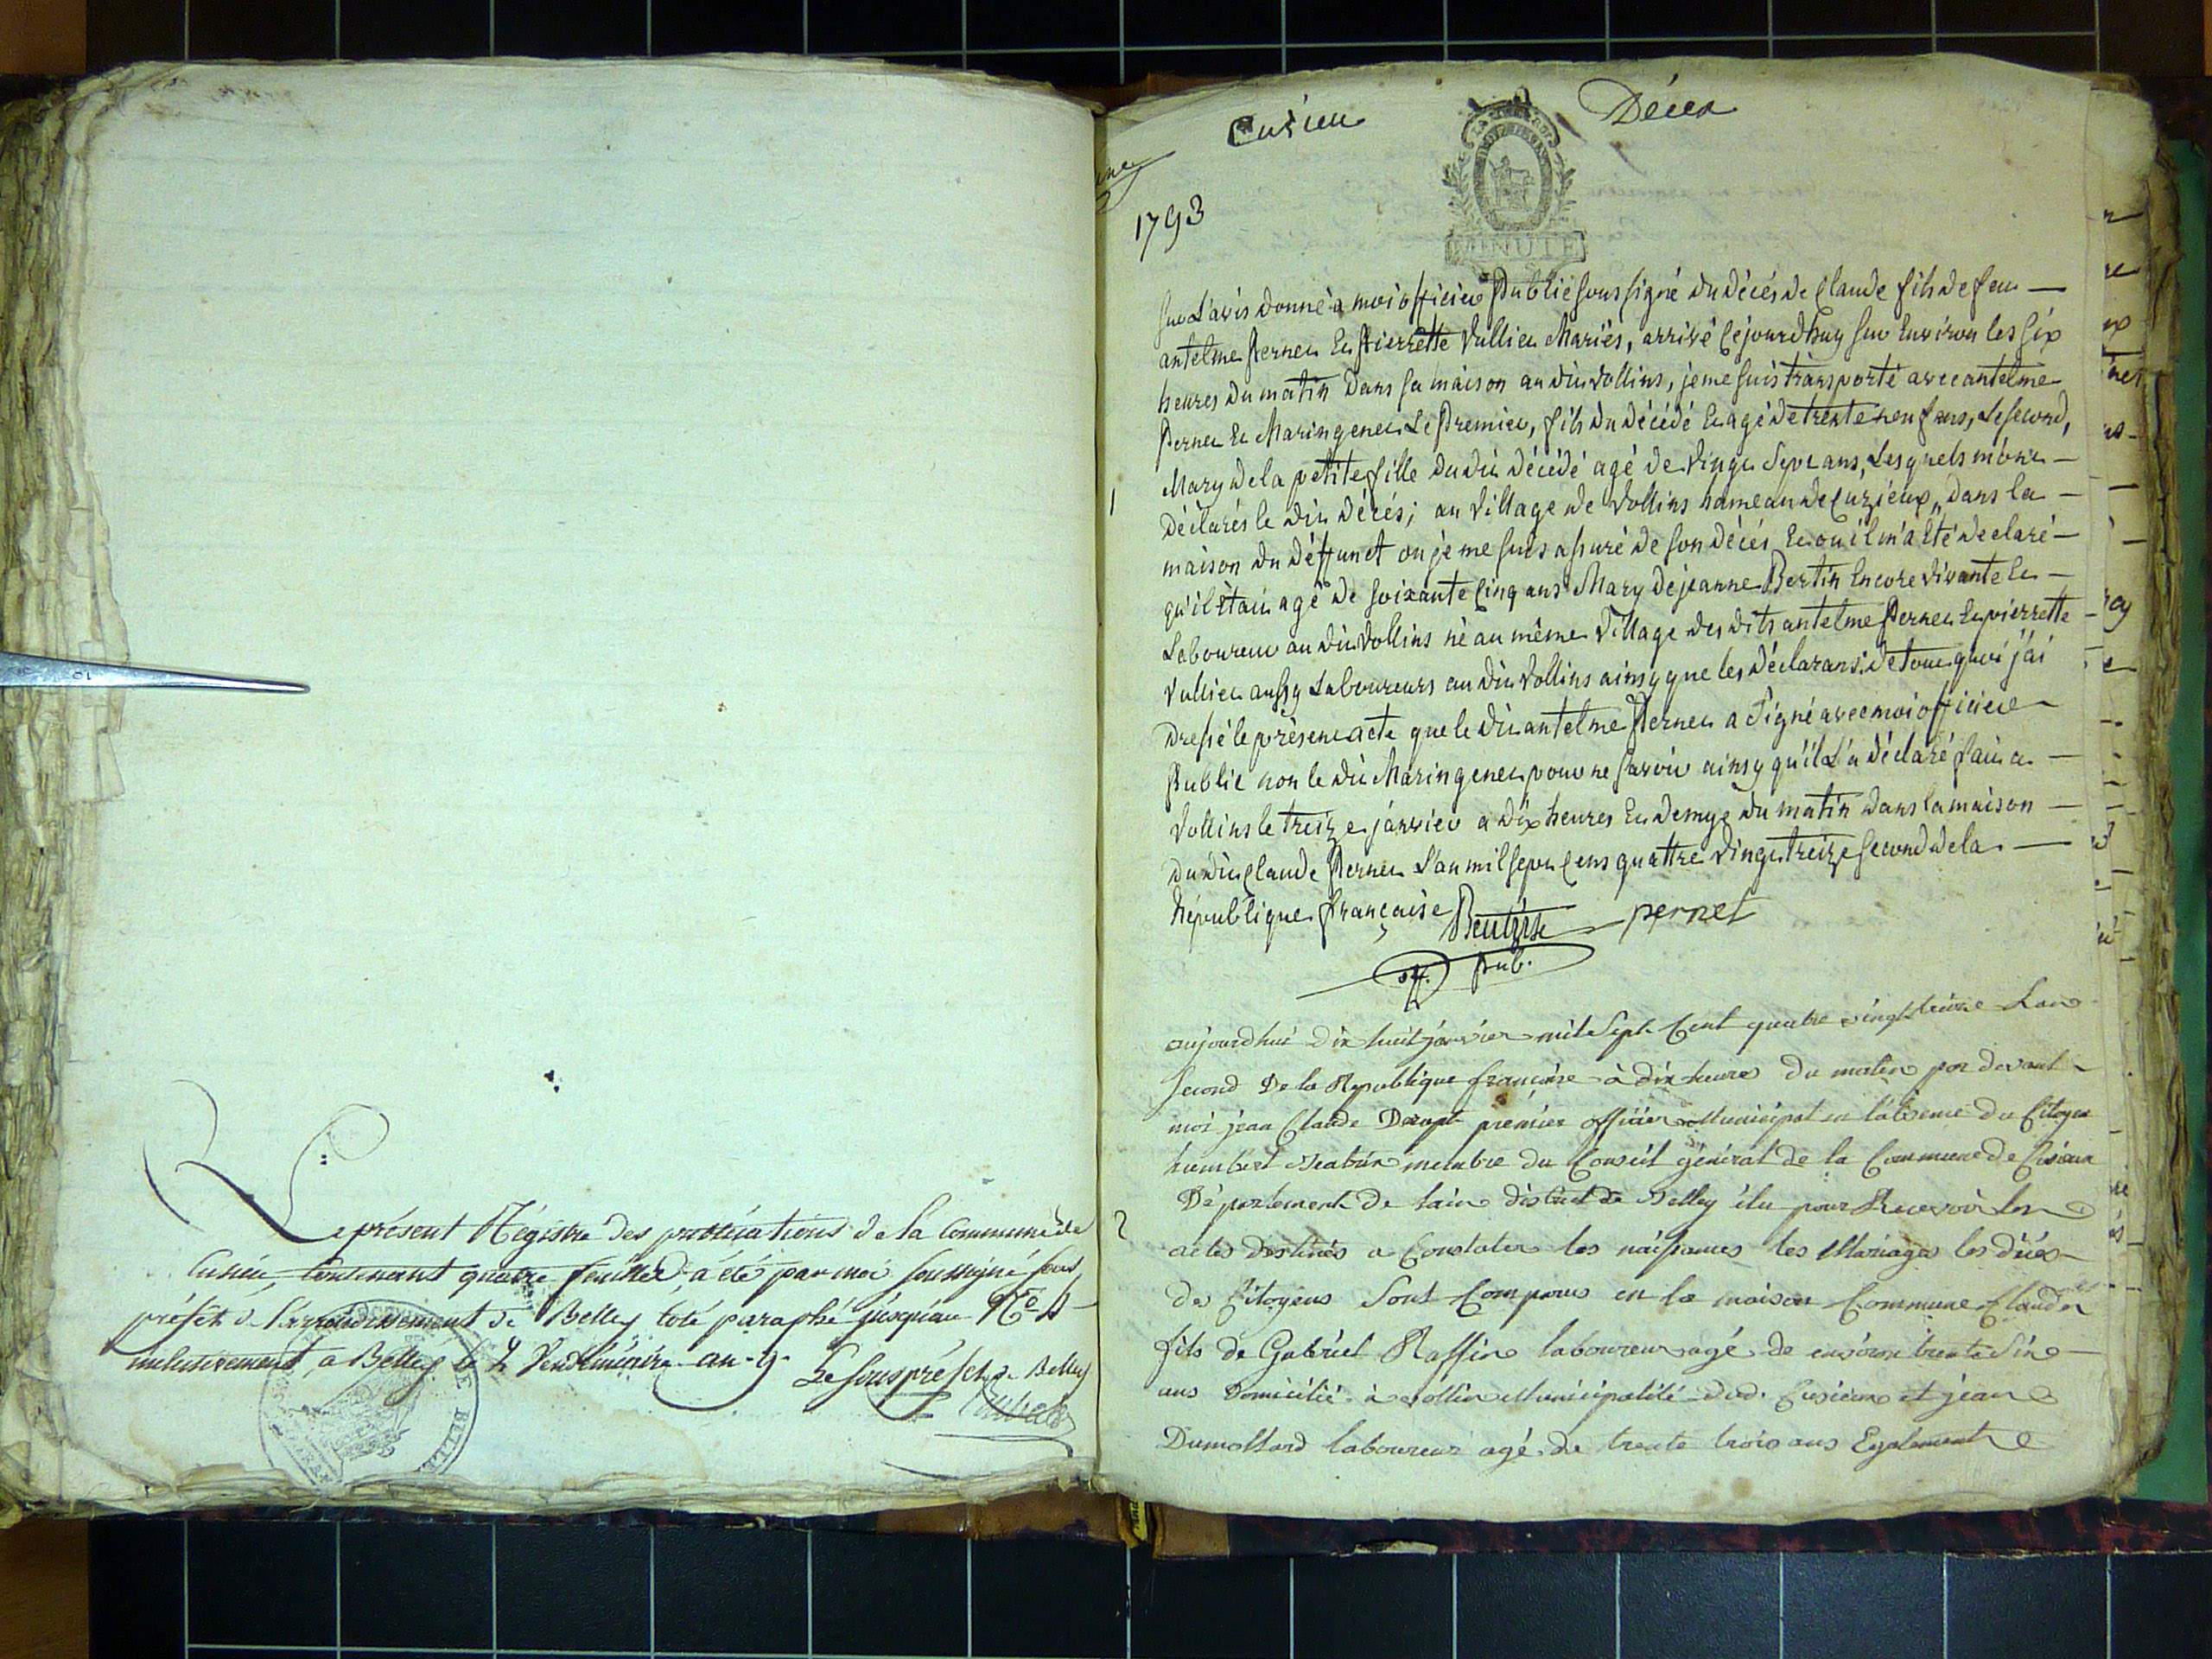 Le présent Régistre des publications de la Commune de
Cusieu, Contenant quatre feuilles a été par moi soussigné sous
préfet de l'arrondissement de Belley coté paraphé jusqu'au No 4
inclusivement, a Belley le Vendémiaire an 9.
Le sous préfet de Belley
Cusieu
Décès
MINUTE
1793
Sur L'avis donné a moi officier Public soussigné du décés de Claude fils de feu
antelme Pernet Et Pierrette Vulliet Mariés, arrivé Cejourdhuy sur Environ les six
heures du matin dans sa maison au dit Vollins, je me suis transporté avec antelme
Pernet Et Marin genet Le Premier, fils du décédé Et agé de trente neuf ans, Le second,
Mary de la petite fille du dit décédé agé de vingt Sept ans, Lesquels m'ont
1
déclarés le dit décés; au Village de Vollins hameau de Cuzieux, dans la
maison du déffunct ou je me suis assuré de son décés Et ou il m'a Eté declaré
qu'il Etait agé de soixante Cinq ans Mary de jeanne Bertin Encore vivante Et
Laboureur au dit Vollins né au même Village des dits antelme Pernet Et pierrette
Vulliet aussy Laboureurs au dit Vollins ainsy que les déclarans; de tout quoi j'ai
dressé le présent acte que le dit antelme Pernet a Signé avec moi officier
Public non le dit Marin genet pour ne savoir ainsy qu'il L'a déclaré fait a
Vollins le treize janvier a dix heures Et demye du matin dans la maison
du dit Claude Pernet L'an mil sept Cens quattre vingt treize second de la
République française
pernet
off. Pub.
aujourdhui dix huit janvier mil Sept Cent quatre vingt treize Lan
second De la Republique francaise à dix heures du matin par devant
moi jean Claude premier officier Municipal en l'absence du Citoyen
humbert membre du Conseil général de la Commune de Cusieux
Département de lain district de Belley élu pour Recevoir les
2
actes destinés a Constater les naissances les Mariages les décés
des Citoyens Sont Comparus en la maison Commune Claude
fils de Gabriel Raffin laboureur agé de environ trente Six
ans Domicilié à Vollin Municipalité dud. Cusieux et jean
Dumollard laboureur agé de trente trois ans Egalement